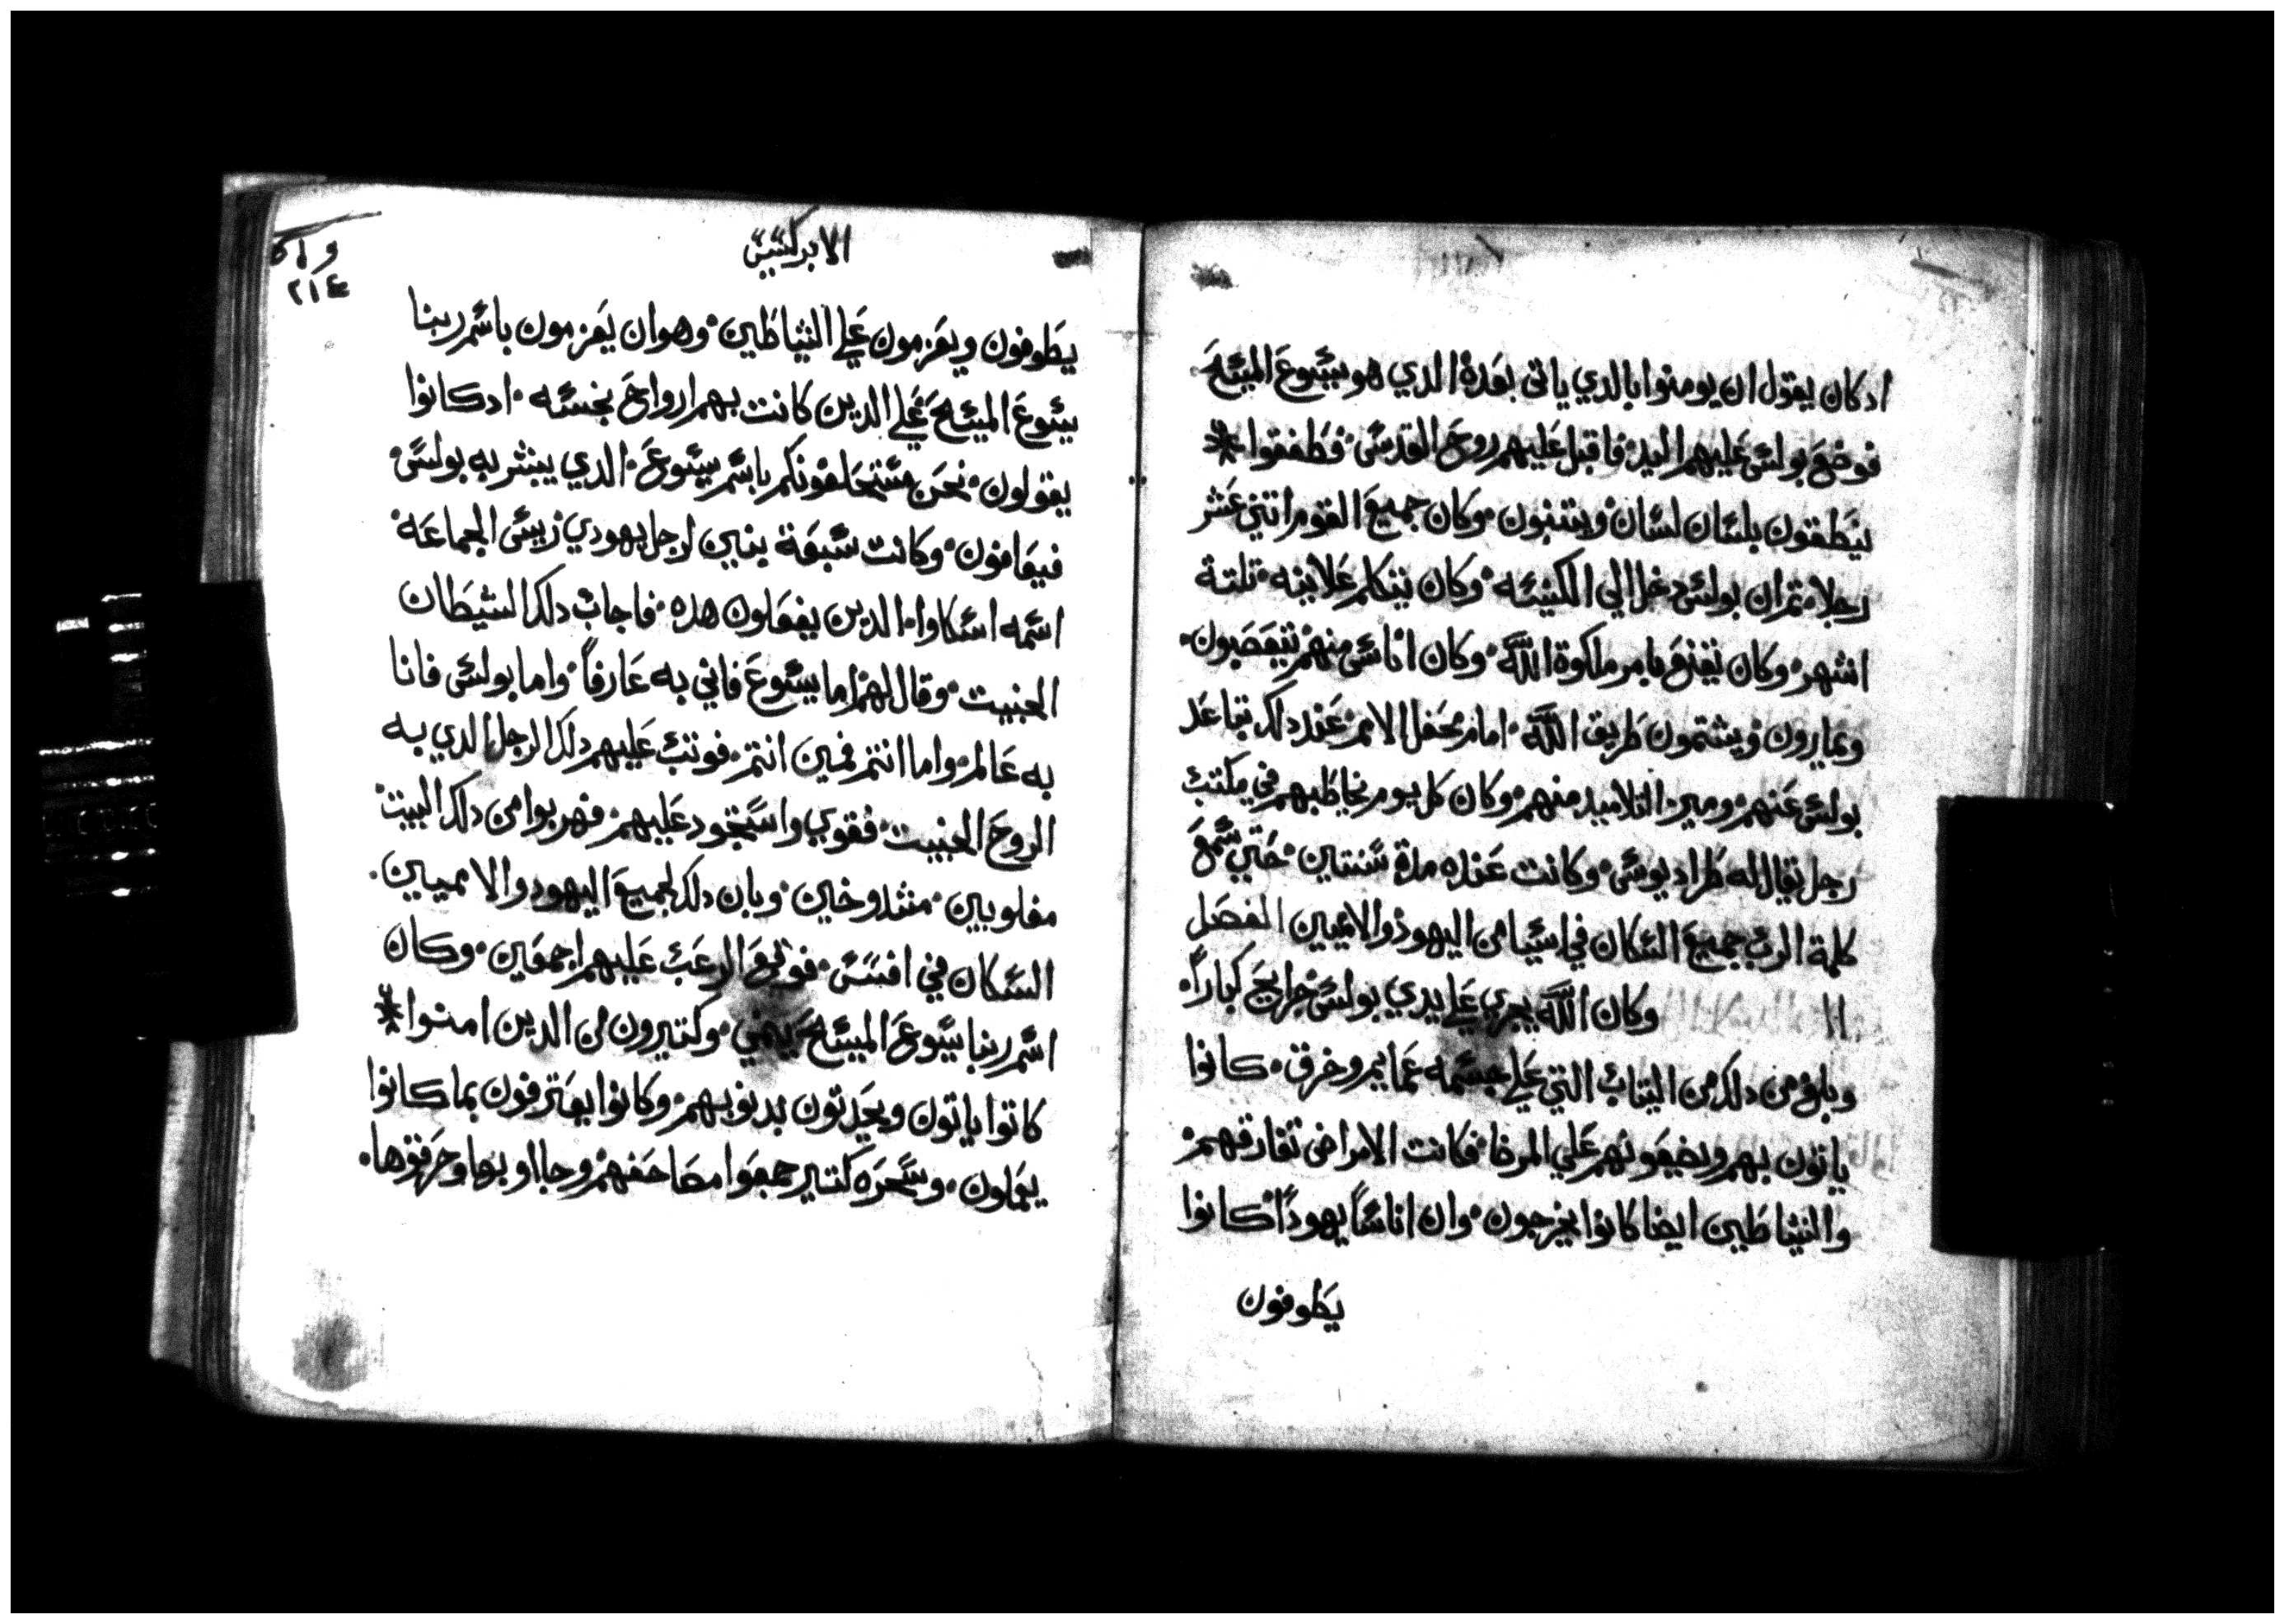 ادكان يقول ان يومنوا بالدي ياتى بعده الدي هو يسوع المسيح
فوضع بولس عليهم اليد فاقبل عليهم روح القدس فطفقوا
ينطقون بلسان لسان ويتنبون وكان جميع القوم اتني عشر
رجلا تم ان بولس دخل الي الكنيسه وكان يتكلم علانيه تلتة
اشهر وكان يقنع بامر ملكوة الله وكان اناس منهم يتعصبون
ويمارون ويشتمون طريق الله امام محفل الامم عند دلك تباعد
بولس عنهم وميز التلاميد منهم وكان كل يوم يخاطبهم في مكتب
رجل يقال له طراديوس وكانت عنده مدة سنتين حتي سمع
كلمة الرب جميع السكان في اسيا من اليهود والامميين الفصل
وكان الله يجري علي يدي بولس جرايح كبارا
وبلغ من دلك من التياب التي علي جسمه عمايم وخرق كانوا
ياتون بهم ويضعونهم علي المرضا فكانت الامراض تفارقهم
والشياطين ايضا كانوا يخرجون وان اناسا يهودا كانوا
يطوفون
الابركسيس
٢١٤
يطوفون ويعزمون علي الشياطين وهوان يعزمون باسم ربنا
يسوع المسيح علي الدين كانت بهم ارواح نجسه ادكانوا
يقولون نحن مستحلفونكم باسم يسوع الدي يبشر به بولس
فيعافون وكانت سبعة بنين لرجل يهودي رييس الجماعه
اسمه اسكاوا الدين يفعلون هده فاجاب دلك الشيطان
الخبيت وقال لهم اما يسوع فاني به عارفا واما بولس فانا
به عالم واما انتم فمين انتم فوتب عليهم دلك الرجل الدي به
الروح الخبيت فقوي واستحود عليهم فهربوا من دلك البيت
مغلوبين مشدوخين وبان دلك لجميع اليهود والامميين
السكان في افسس فوقع الرعب عليهم اجمعين وكان
اسم ربنا يسوع المسيح ينمي وكتيرون من الدين امنوا
كانوا ياتون ويحدتون بدنوبهم وكانوا يعترفون بما كانوا
يعملون وسحره كتير جمعوا مصاحفهم وجااو بها وحرقوها